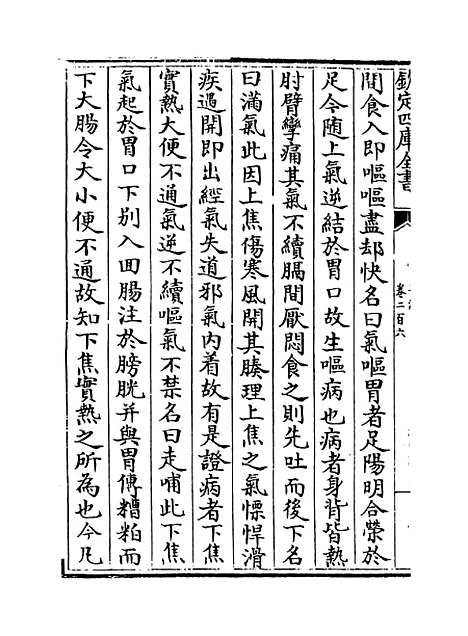 欽定四庫全書
卷二百六
間食入即嘔嘔盡却快名曰氣嘔胃者足陽明合榮於
足今随上氣逆結於胃口故生嘔病也病者身背皆熱
肘臂攣痛其氣不續膈間厭悶食之則先吐而後下名
曰滿氣此因上焦傷寒風開其腠理上焦之氣慓悍滑
疾遇開即出經氣失道邪氣内着故有是證病者下焦
實熱大便不通氣逆不續嘔氣不禁名曰走哺此下焦
氣起於胃口下别入囬腸注於膀胱并與胃傳糟粕而
下大腸令大小便不通故知下焦實熱之所為也今凡